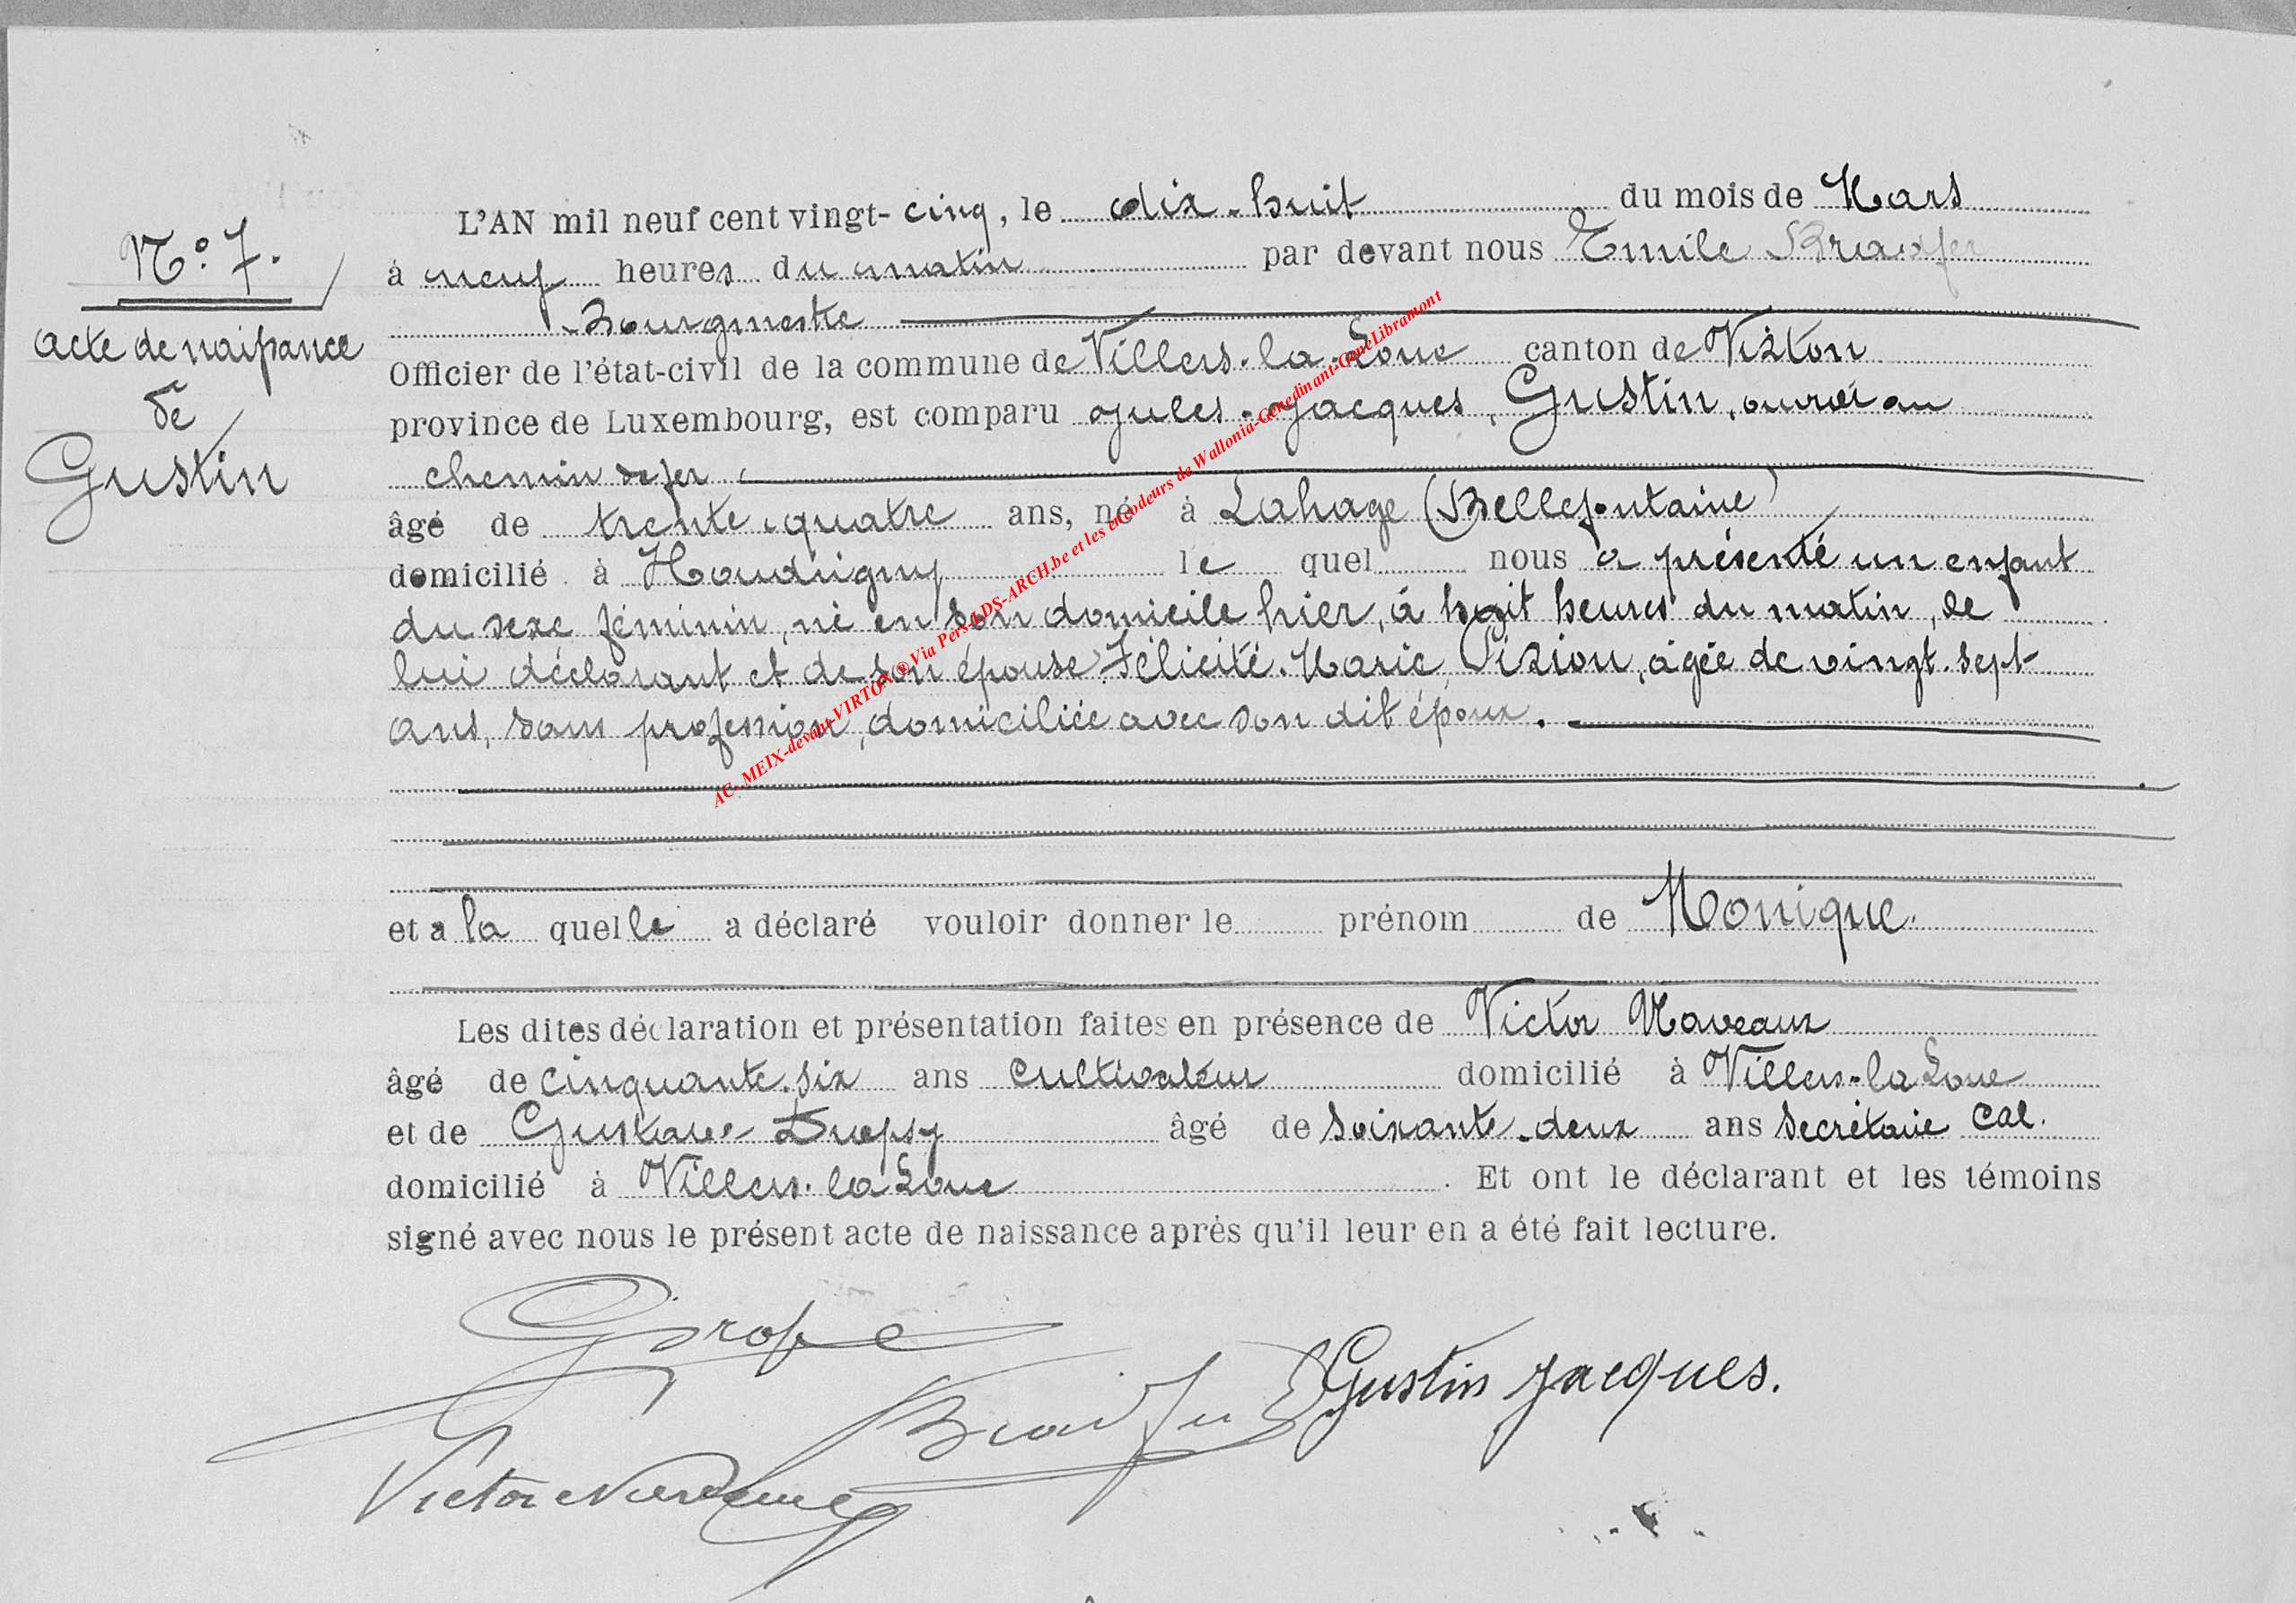 N° 7.
acte de naissance
de
Gustin
L'AN mil neuf cent vingt-cinq, le dix-huit du mois de Mars
à neuf heures du matin par devant nous Emile Braidfer
Bourgmestre
Officier de l'état-civil de la commune de Villers-la-Loue canton de Virton
province de Luxembourg, est comparu Jules-Jacques, Gustin, ouvrier au
chemin de fer
âgé de trente-quatre ans, né à Lahage (Bellefontaine)
domicilié à Houdrigny le quel nous a présenté un enfant
du sexe féminin, né en son domicile hier, à huit heures du matin, de
lui déclarant et de son épouse Félicité-Marie, âgée de vingt-sept
ans, sans profession, domiciliée avec son dit époux.
et a la quelle a déclaré vouloir donner le prénom de Monique.
Les dites déclaration et présentation faites en présence de Victor Naveaux
âgé de cinquante-six ans cultivateur domicilié à Villers-la Loue
et de Gustave âgé de soixante-deux ans secrétaire cal.
domicilié à Villers-la Loue. Et ont le déclarant et les témoins
signé avec nous le présent acte de naissance après qu'il leur en a été fait lecture.
Gustin Jacques.
Victor
AC- MEIX-devant-VIRTON ® Via Pers-LDS-ARCH.be et les encodeurs de Wallonia-Genedinant-GeneLibramont